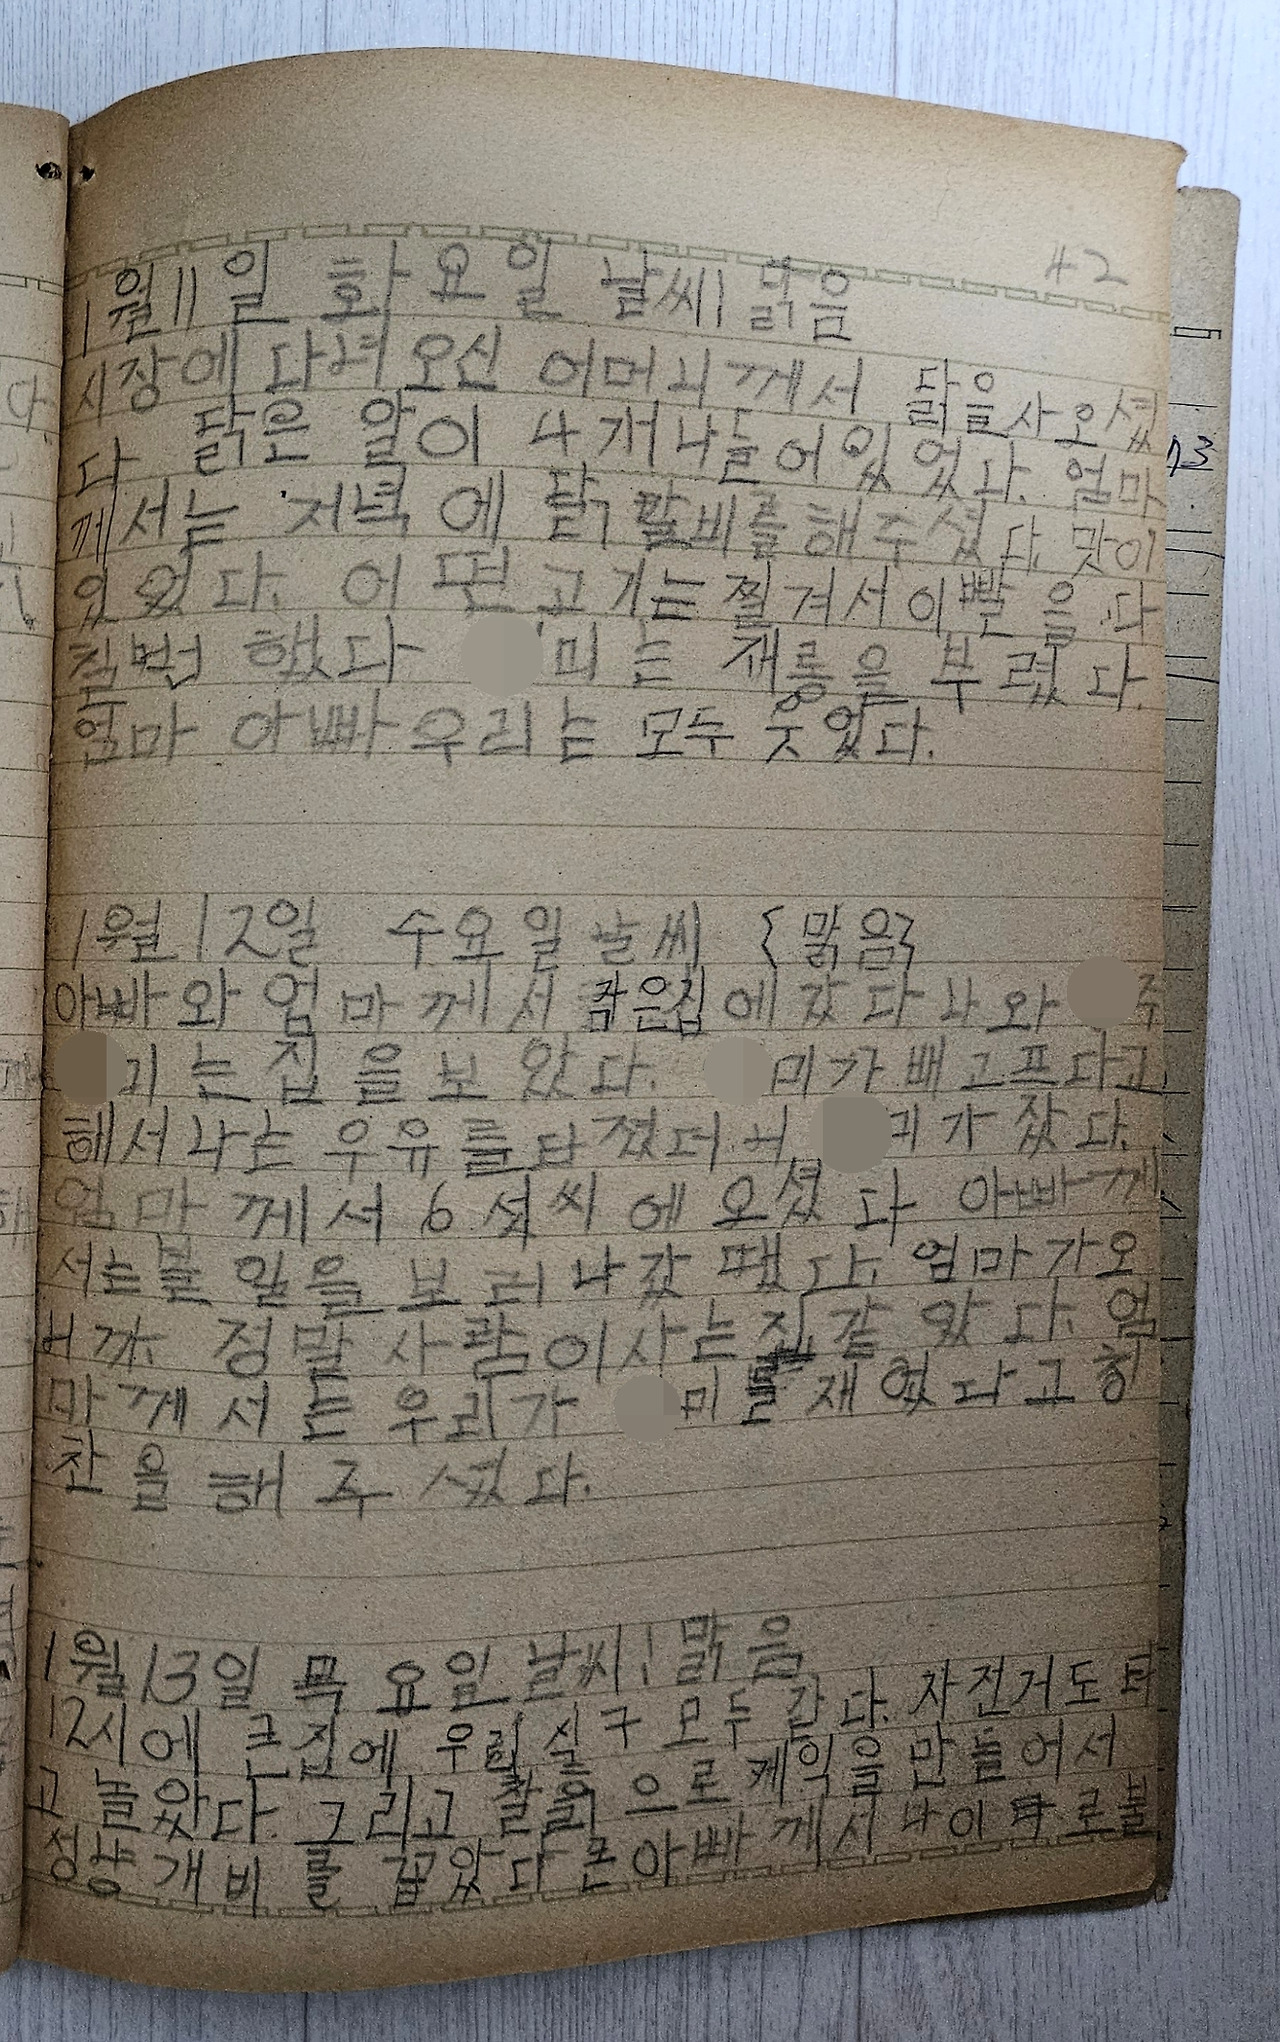 42
1월11일 화요일 날씨| 맑음
시장에 다녀오신 어머니께서 닭을사오셨
다 닭은 알이 4개나들어있었다. 엄마
께서는 저녁에 닭갈비를해주셨다. 맛이
있었다. 어떤고기는찔겨서이빨을.다
칠번했다 미는 재롱을부렸다.
엄마 아빠우리는 모두웃었다.
1월12일 수요일날씨 {맑음}
아빠와엄마께서 작은집에갔다나와 주
미는집을보았다. 미가배고프다고
해서나는우유를타줬더니 미가잤다.
엄마께서 6섯씨에오셨다 아빠께
서는볼일을보러나갔땠다. 엄마가오
니까. 정말사람이사는집같았다. 엄
마께서는우리가 미를재웠다고칭
찬을해주셨다.
1월13일 목요일날씨! 맑음
12시에 큰집에 우리식구모두간다. 자전거도타
고 놀았다. 그리고 찰흙으로케익을만들어서
성냥개비를 꼽았다 큰아빠께서나이타로불